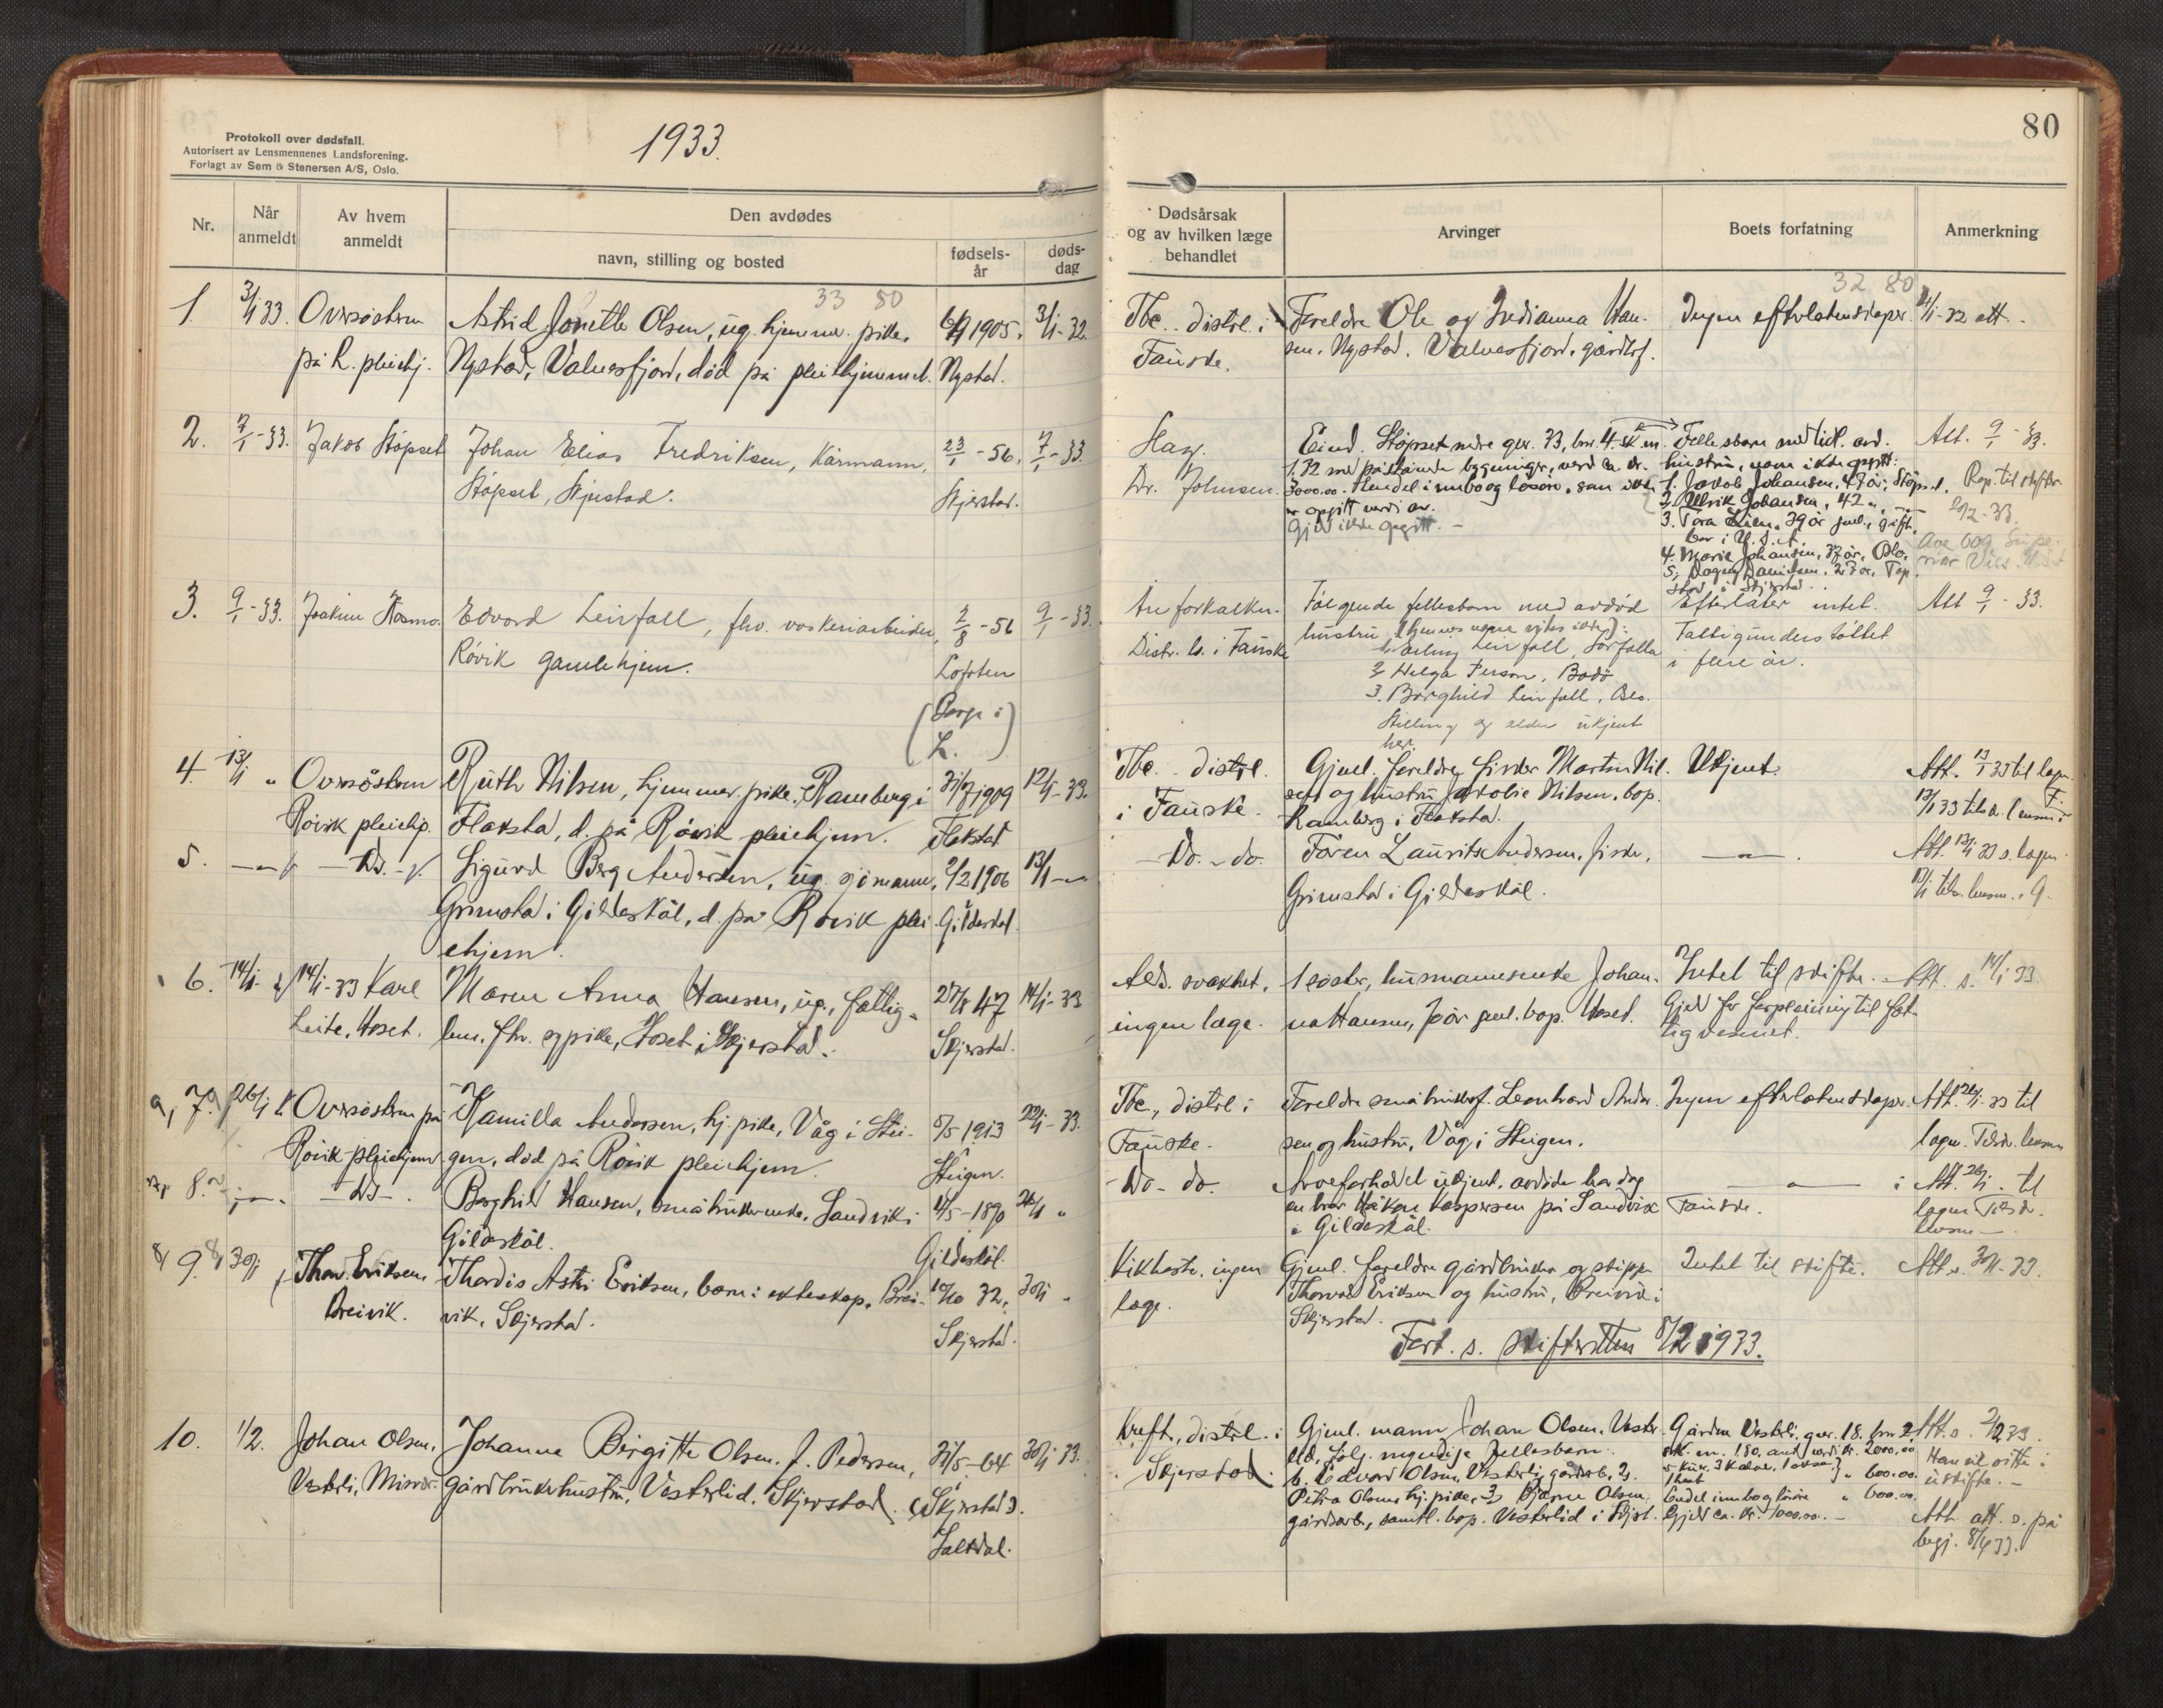 Protokoll over dødsfall.
Autorisert av Lensmennenes Landsforening.
Forlagt av Sem & Stenersen A/S, Oslo.
1933.
80
Nr.
Når anmeldt
Av hvem anmeldt
Den avdødes
navn, stilling og bosted
fødsels-år
døds-dag
Dødsårsak og av hvilken læge behandlet
Arvinger
Boets forfatning
Anmerkning
33 80
32 80
1. 3/1 33. Oversøstern Astrid Jonette Olsen, ug. hjemmev. pike, 6/9 1905. 3/1-32. Tbc. distrl. i Foreldre Ole og Indianna Han- Ingen efterlatenskaper. 4/1-32 att.
på R. pleiehj. Nystad, Valnesfjord, død på pleiehjemmet. Nystad. Fauske. sen, Nystad. Valnesfjord, gårdbr.
2. 7/1-33. Jakob Støpset Johan Elias Fredriksen, kårmann, 23/1-56. 7/1-33. Slag. Eiend. Støpset nedre gnr. 73, bnr. 4. sk.m. Felles barn med tidl. avd. Att. 9/1-33.
Støpset, Skjerstad. Skjerstad. Dr. Johnsen. 1.32 med påstående bygninger, verd ca. kr. hustru, navn ikke opgitt:
3000.00. Hendel innbo og løsøre, som ikke 1. Jakob Johansen, 47 år, Støpset. Rap. til skifter.
er opgitt verdi av. 2. Ulrik Johansen, 42 "
Gjeld ikke opgitt. - 3. Tora Lien, 39 år gml., gift,
bor i U.S.A.
4. Marie Johansen, 37 år, Oslo.
5. Dagny Danielsen, 27 år,
stad i Skjerstad.
3. 9/1-33. Joakim Kosmo. Edvard Leirfall, fhv. vaskeriarbeider, 2/8-56 9/1-33. Åreforkalkn. Følgende fellesbarn med avdød Efterlater intet. Att 9/1-33.
Røvik gamlehjem. Lofoten Distr. l. i Fauske hustru (hennes navn vites ikke): Fattigunderstøttet
1. Erling Leirfall, Sørfolla i flere år.
2. Helga Person, Bodø
(Borge i L.) 3. Borghild Leirfall, Oslo.
Stilling og alder ukjent
her.
4. 13/1 " Oversøstern Ruth Nilsen, hjemmev. pike, Ramberg i 31/7 1909 12/1-33. Tbc. distrl. Gjenl. foreldre fisker Martin Nil- Ukjent. Att. 13/1 33 til lagm.
Røvik pleiehj. Flaksta, d. på Røvik pleiehjem. Flakstad i Fauske. sen og hustru Jakobie Nilsen, bop. 13/1 33 tilskr. lensm. i F.
Ramberg i Flaksta.
5. -"- -Do.- Sigurd Berg Andersen, ug. sjømann, 2/2 1906 13/1 -"- -Do.-do. Faren Laurits Andersen, fisker, -"-. Att. 13/1 33 s. lagm.
Grimstad i Gildeskål, d. på Røvik plei- Gildeskål. Grimstad i Gildeskål. 13/1 tilsk. lensm. i G.
ehjem.
6. 14/1- 14/1-33 Karl Maren Anna Hansen, ug., fattig- 27/8 47 14/1-33 Alds. svakhet, 1 søster, husmannsenke Johan- Intet til skifte. Att. s. 14/1 33
Leite, Hoset. lem, fhv. sypike, Hoset i Skjerstad. Skjerstad. ingen læge. na Hansen, 70 år gml. bop. Hoset. Gjeld for forpleining til fat-
tigvesenet.
7. 26/1 Oversøstern på Kamilla Andersen, hj. pike, Våg i Stei- 5/5 1913 22/1-33. Tbc., distrl. i Foreldre småbrukerf. Leonhard Ander- Ingen efterlatenskaper. Att. 26/1-33 til
Røvik pleiehjem gen, død på Røvik pleiehjem. Steigen. Fauske. sen og hustru, Våg i Steigen. lagm. Tilskr. lensm
8. -"-. -Do-. Borghild Hansen, småbrukerenke, Sandvik i 4/5-1890 26/1 " -Do-do. Arveforholdet ukjent, avdøde har dog -"- i Att. 26/1. til
Gildeskål. Gildeskål. en bror Håkon Kaspersen på Sandvik Fauske. lagm Tilskr.
i Gildeskål. lensm -.
9. 30/1 Thorv. Eriksen Thordis Astri Eriksen, barn i ekteskap. Brei- 10/10 32. 30/1 " Kikhoste, ingen Gjenl. foreldre gårdbruker og skipper Intet til skifte. Att. 30/1-33.
Breivik. vik, Skjerstad. Skjerstad. læge. Thorvald Eriksen og hustru, Breivik i
Skjerstad.
Fort. s. skifteretten 8/2 1933.
10. 1/2. Johan Olsen, Johanna Birgitte Olsen, f. Pedersen, 31/5-64 30/1 33. Kreft, distrl. i Gjenl. mann Johan Olsen, Vester- Gården Vesterli, gnr. 18. bnr 2. Att. s. 2/2 33.
Vesterli, Misvær. gårdbrukerhustru, Vesterlid, Skjerstad. (Skjerstad). Skjerstad. lid, følg. myndige fellesbarn: sk. m. 1.80, ant. verdi kr. 2000.00 Han vil sitte i
Saltdal. 1. Edvard Olsen, Vesterli, gårdarb., 2. 5 kür, 3 kalver, 1 okse " 600.00 uskifte. -
Petra Olsen, hj. pike, 3. Bjarne Olsen, 1 hest
gårdsarb., samtl. bop. Vesterlid i Skjst. Endel innbo og løsøre " 600.00
Gjeld ca. kr. 1000.00. - Att. att. s. på
begj. 8/4 33.